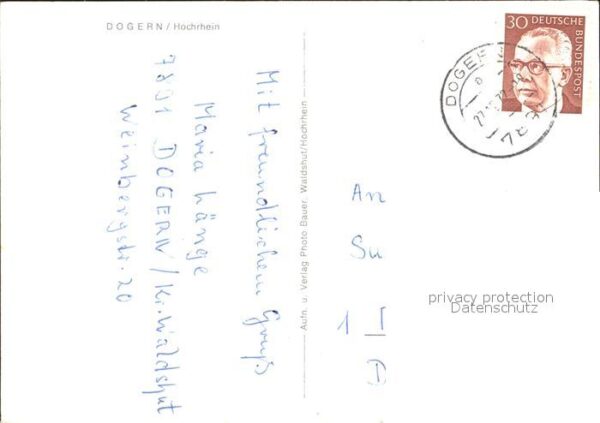 DOGERN / Hochrhein
Mit freundlichem Gruß
Maria Länge
7891 DOGERN / Kr. Waldshut
Weinbergstr. 20
Aufn. u. Verlag Photo Bauer, Waldshut/Hochrhein
30 DEUTSCHE BUNDESPOST
DOGER
An
Su
1 I
D
privacy protection
Datenschutz